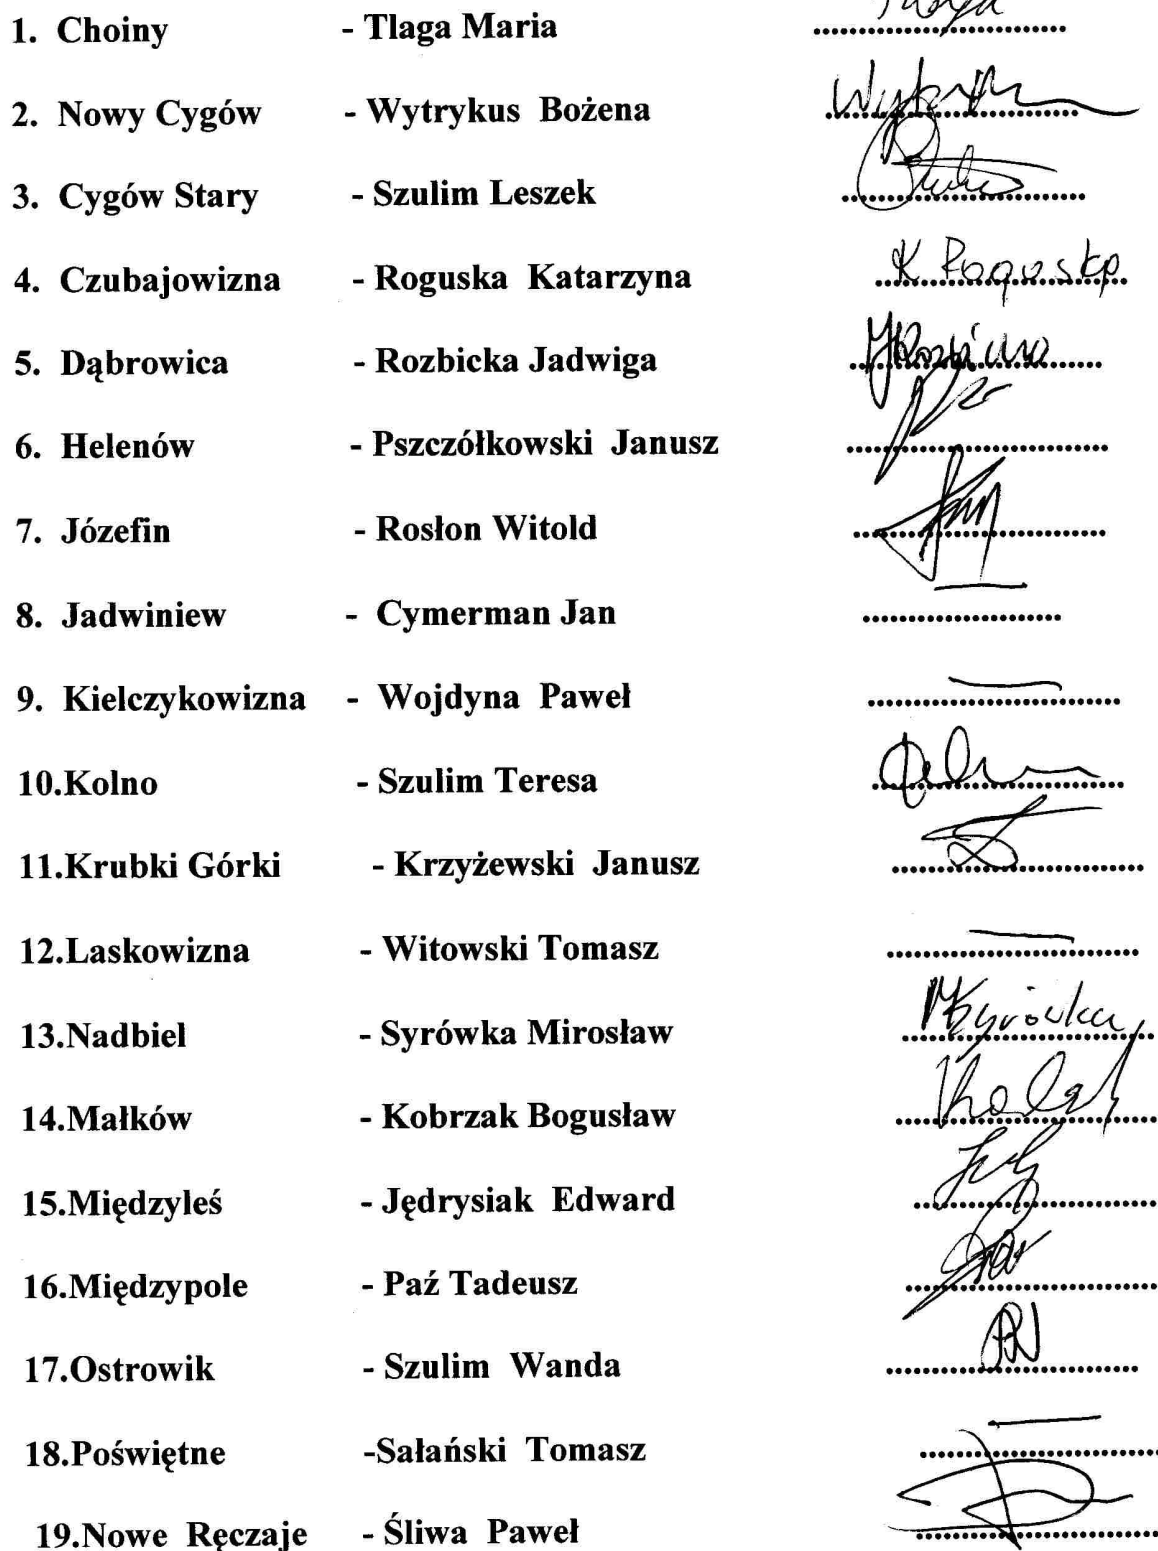 1. Choiny - Tlaga Maria
2. Nowy Cygów - Wytrykus Bożena
3. Cygów Stary - Szulim Leszek
4. Czubajowizna - Roguska Katarzyna K Roguska
5. Dąbrowica - Rozbicka Jadwiga
6. Helenów - Pszczółkowski Janusz
7. Józefin - Rosłon Witold
8. Jadwiniew - Cymerman Jan
9. Kielczykowizna - Wojdyna Paweł
10.Kolno - Szulim Teresa
11.Krubki Górki - Krzyżewski Janusz
12.Laskowizna - Witowski Tomasz
13.Nadbiel - Syrówka Mirosław MSyrówka
14.Małków - Kobrzak Bogusław
15.Międzyleś - Jędrysiak Edward
16.Międzypole - Paź Tadeusz
17.Ostrowik - Szulim Wanda
18.Poświętne -Sałański Tomasz
19.Nowe Ręczaje - Śliwa Paweł